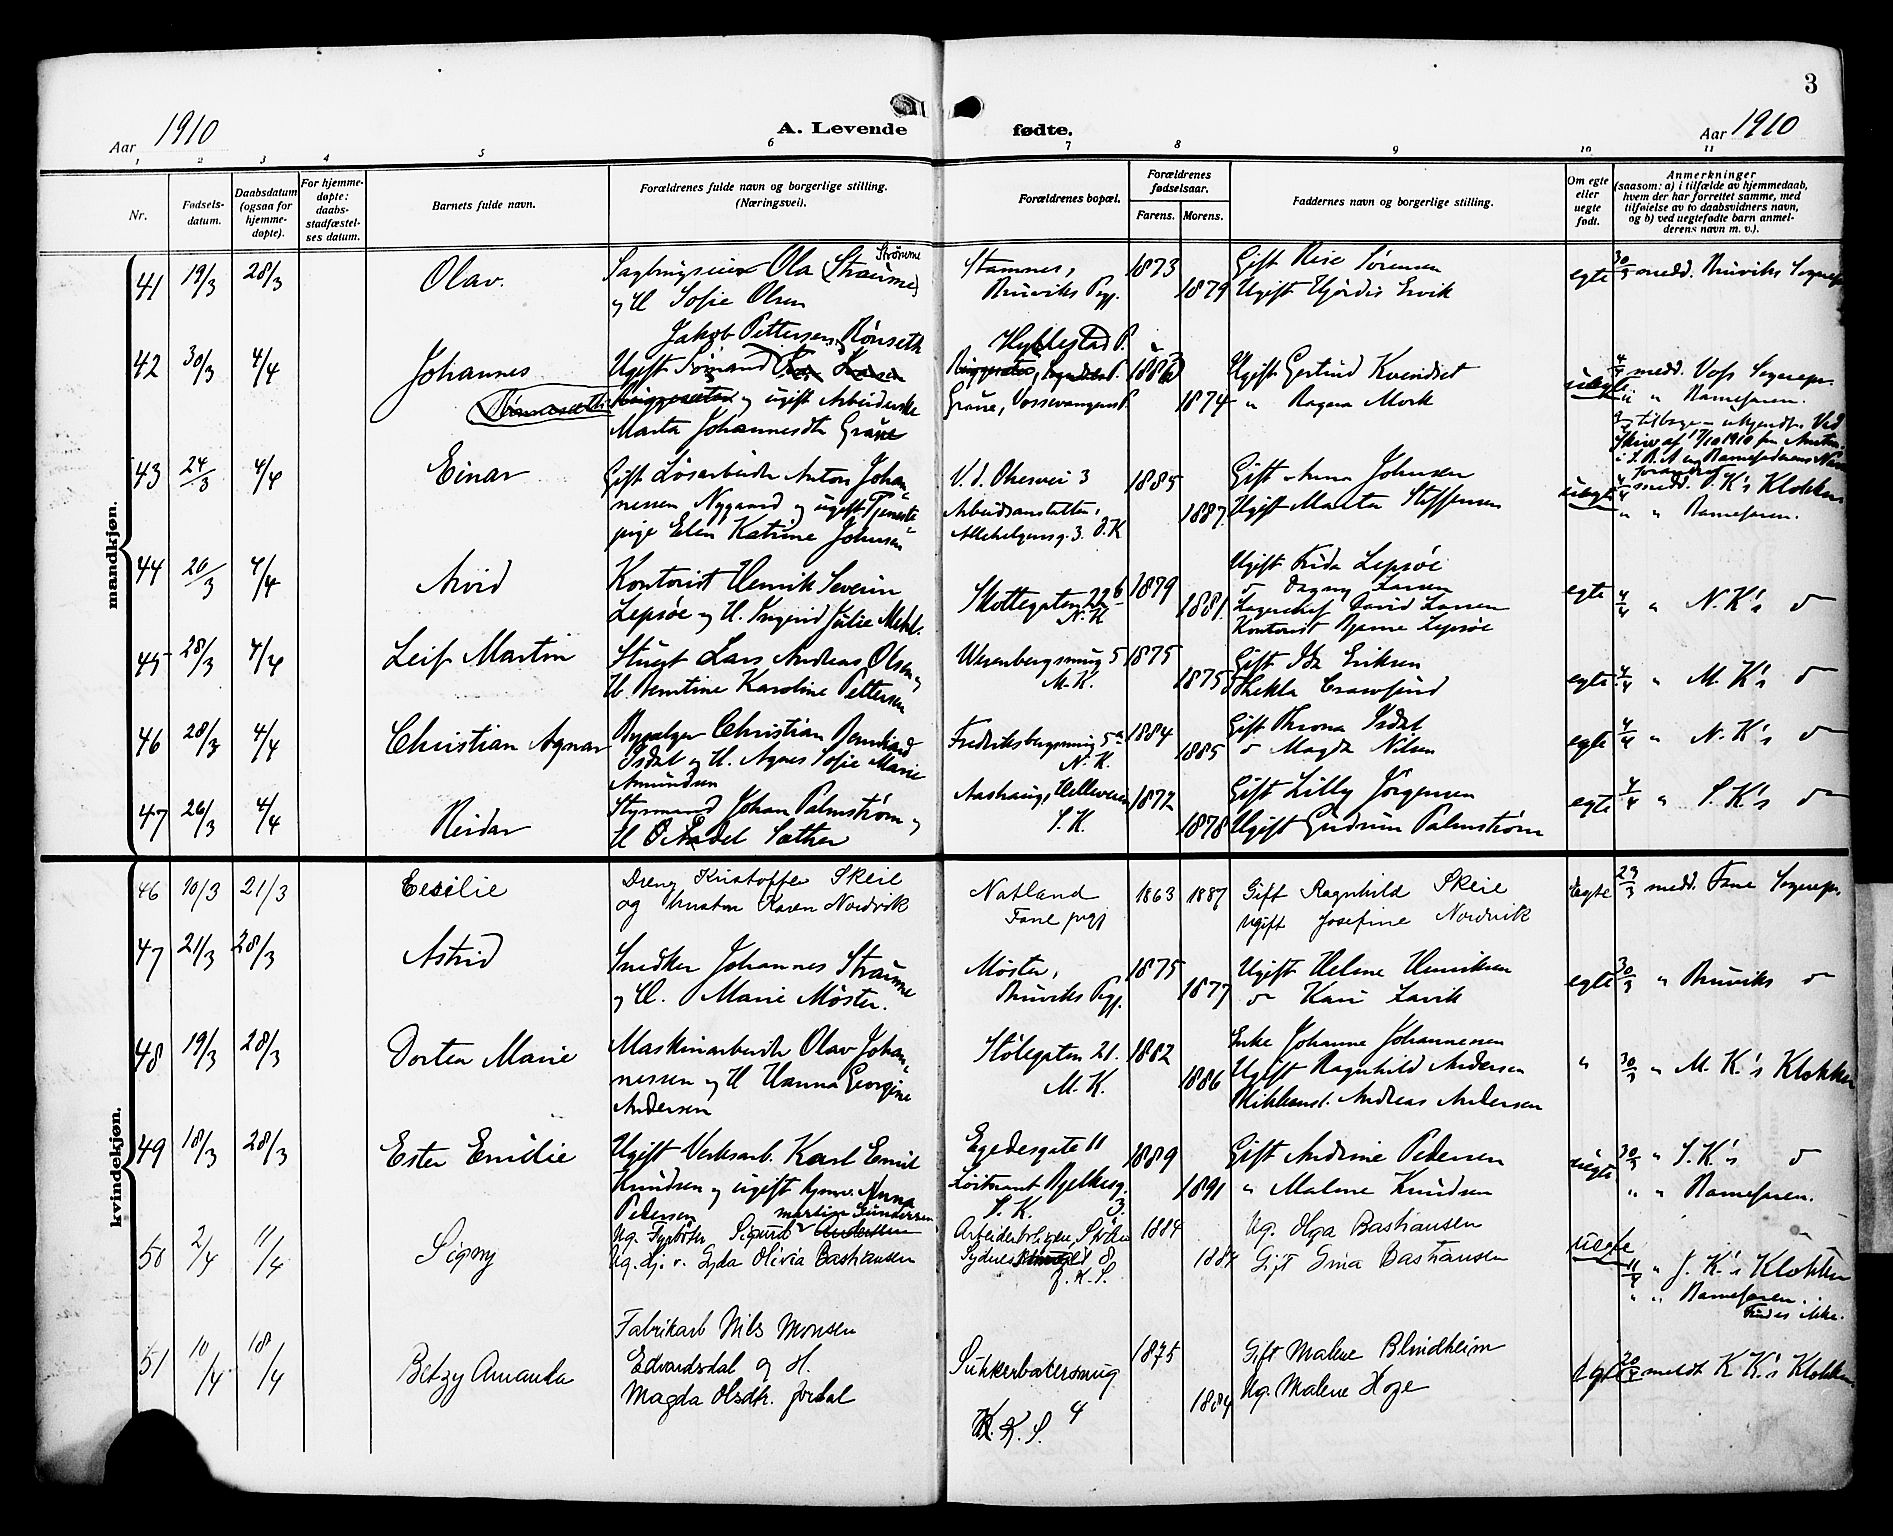 3
Aar 1910
A. Levende fødte.
Aar 1910
1 2 3 4 5 6 7 8 9 10 11
Nr.
Fødsels-
datum.
Daabsdatum
(ogsaa for
hjemme-
døpte).
For hjemme-
døpte:
daabs-
stadfæstel-
ses datum.
Barnets fulde navn.
Forældrenes fulde navn og borgerlige stilling.
(Næringsvei).
Forældrenes bopæl.
Forældrenes
fødselsaar.
Farens. Morens.
Faddernes navn og borgerlige stilling.
Om egte
eller
uegte
født.
Anmerkninger
(saasom: a) i tilfælde av hjemmedaab,
hvem der har forrettet samme, med
tilføielse av to daabsvidners navn,
og b) ved uegtefødte barn anmel-
derens navn m. v.).
mandkjøn.
41 19/3 28/3 Olav.
Ola (Straume) Strømme
og H Sofie Olsen
Stamnes,
Bruviks Pgj.
1873
1879
Gift Sørensen
Ugift Hjørdis Ervik
egte
30/3 medd. Bruviks Sognepr.
42 30/3 4/4 Johannes
Jakob Pettersen Rønseth
Ugift Sømand
og ugift Arbeiderske
Marta Johannesdtr Graue
Hyllestad P.
Graue, Vossevangens P.
1883
1874
Ugift Gertrud Kvendset
" Ragna Mork
uegte
4/4 medd. Voss Sognepr.
" " Barnefaren.
tilbage - ukjendt. Ved
Skriv af 17/10 1910 fra
43 24/3 4/4 Einar
Gift Løsarbeider Anton Johan-
nessen Nygaard og ugift Tjeneste-
pige Elen Katrine Johnsen
V. d. Ohesvei 3
Arbeidsanstalten,
Allehelgensg. 3. D.K
1885
1887.
Gift Anna Johnsen
Ugift Marta Steffensen
uegte
4/4 medd. D. K's Klokker
" " Barnefaren.
44 20/3 4/4 Arvid
Kontorist Henrik Severin
Lepsøe og H. Ingrid Julie Mehl.
Skottegaten 22 b
N. K
1879
1881.
Ugift Frida Lepsøe
" Dagny Larsen
Lagerchef David Larsen
Kontorist Bjarne Lepsøe
egte
4/4 " N. K's
45 28/3 4/4 Leif Martin
Stuert Lars Andreas Olsen og
H. Berntine Karoline Pettersen
Wesenbergsmug 5
M. K.
1875
1875
Gift Ida Eriksen
Thekla Crawfurd
egte
4/4 " M. K's
46 28/3 4/4 Christian Agnar
Christian Bernhard
Isdal og H. Agnes Sofie Marie
Amundsen
Fredriksbergsmug 5a
N. K.
1884
1885
Gift Throna Isdal
Magda Nilsen
egte
4/4 " N. K's
47 26/3 4/4 Reidar
Styrmand Johan Palmstrøm og
H Sather
Aashaug, Helleveien
S. K.
1872
1878
Gift Lilly Jørgensen
Ugift Gudrun Palmstrøm
egte
4/4 " S. K's
kvindekjøn.
46 10/3 21/3 Cecilie
Dreng Kristoffer Skeie
og hustru Karen Nordvik
Natland
Fane pvgj
1863 1887
Gift Ragnhild Skeie
Ugift Josefine Nordvik
Egte
29/3 medd. Fane Sognepr.
47 21/3 28/3 Astrid
Snedker Johannes Straume
og H. Marie Møster.
Møster,
Bruviks Pgj.
1875
1877
Ugift Helene Henriksen
Kari Lavik
egte
30/3 " Bruviks
48 19/3 28/3 Dortea Marie
Maskinarbeider Olav Johan-
nessen og H Hanna Georgine
Andersen
Stølegaten 21.
M. K.
1882
1886
Enke Johanne Johannessen
Ugift Ragnhild Andersen
Andreas Andersen
"
30/3 " M. K's Klokker
49 18/3 28/3 Ester Emilie
Ugift Verksarb. Karl Emil
Knudsen og ugift Anna
Pedersen
Egedesgate 11
Løitnant Bjelkesg. 3
S. K.
1889
1891
Gift Andrine Pedersen
" Malene Knudsen
uegte
30/3 " S. K's
" " Barnefaren.
50 2/4 11/4 Signy
Martin Gundersen
Ug. Fyrbøter Sigurd Andersen
Ug. Tj. v. Gyda Olivia Bastiansen
Arbeiderboligene,
Sydnes 8
1884
1884
Ug. Olga Bastiansen
Gift Gina Bastiansen
uegte
11/4 " J. K's Klokker
" " Barnefaren.
Findes ikke.
51 10/4 18/4 Betzy Amanda
Fabrikarb Nils Monsen
Edvardsdal og H.
Magda Olsdtr. Jordal
Sukkerhusesmug
4
K. S.
1875
1884
Gift Malene Blindheim
Ug. Malene Hoge
egte
20/4 meldt K K's Klokker.